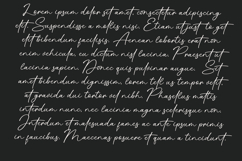 Lorem ipsum dolor sit amet, consectetur adipiscing
elit. Suspendisse a mattis nisi. Etiam ut justo get
elit bibendum facilisis. Aenean lobortis orci non
enim vehicula, ac dictum nisl lacinia. Praesent at
lacinia sapien. Donec quis pulvinar augue. Sed
amet bibendum dignissim, lorem tellus tempor elit
at gravida dui tortor vel nibh. Phasellus mattis
interdum nunc, nec lacinia magna scelerisque non.
Interdum et malesuada fames ac ante ipsum primis
in faucibus. Maecenas posuere et quam a tincidunt.